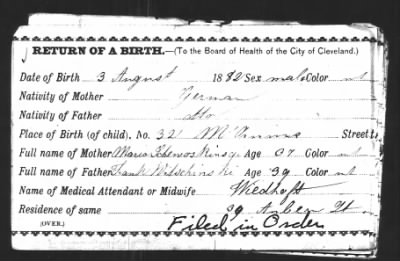 RETURN OF A BIRTH.—(To the Board of Health of the City of Cleveland.)
Date of Birth 3 August 1882 Sex male Color
Nativity of Mother German
Nativity of Father dto
Place of Birth (of child), No. 321 Street
Full name of Mother Maria Age Color
Full name of Father Frank Age 39 Color
Name of Medical Attendant or Midwife Wiedhoft
Residence of same 39 St
(OVER.) Filed in Order